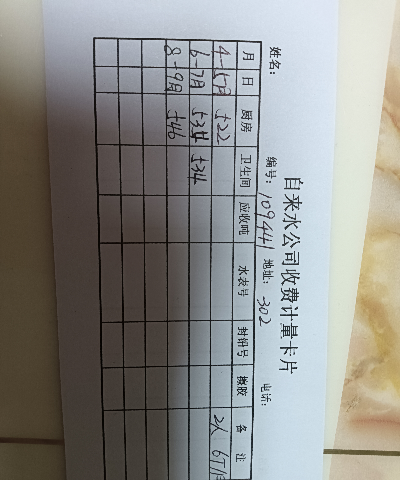 自来水公司收费计量卡片
姓名: 编号: 109441 地址: 302 电话:
月 日 厨房 卫生间 应收吨 水表号 封铅号 橡胶 备 注
4-5月 522 2人
6-7月 534 534
8-9月 546